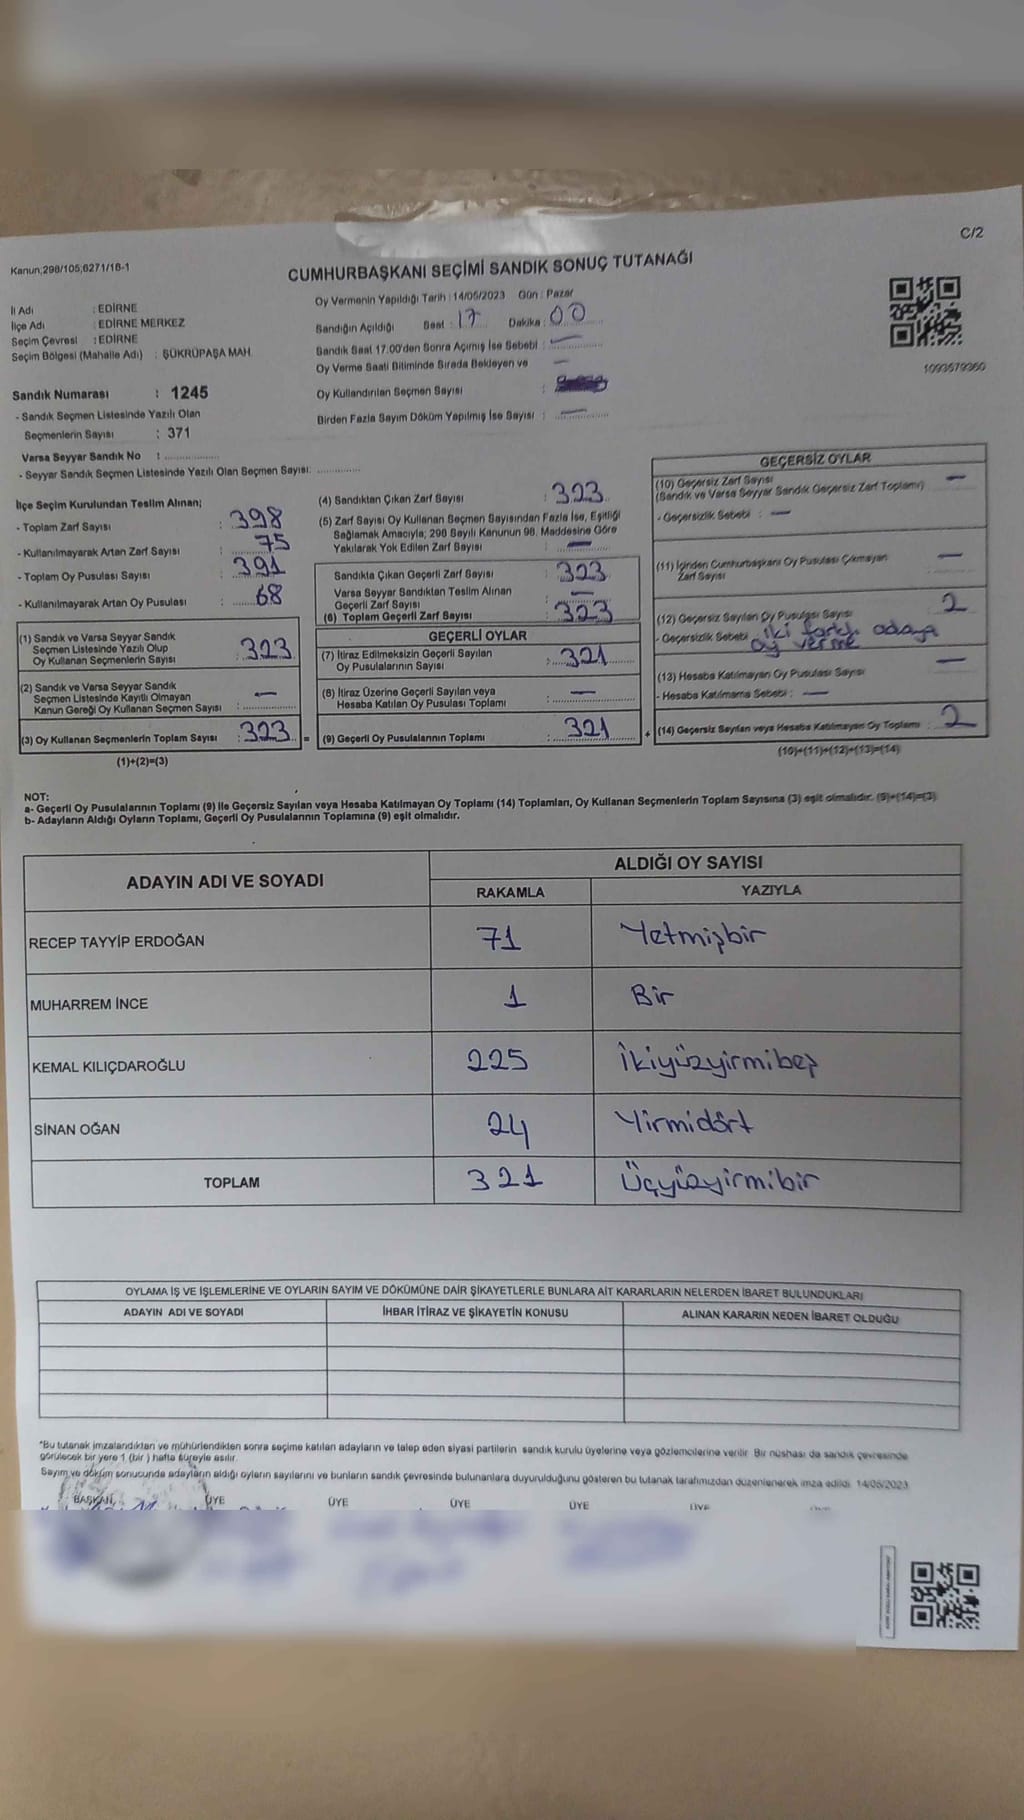 C/2
Kanun;298/105,6271/18-1
CUMHURBAŞKANI SEÇİMİ SANDIK SONUÇ TUTANAĞI
İl Adı : EDİRNE
İlçe Adı : EDİRNE MERKEZ
Seçim Çevresi : EDİRNE
Seçim Bölgesi (Mahalle Adı) : ŞÜKRÜPAŞA MAH.
Oy Vermenin Yapıldığı Tarih : 14/05/2023 Gün : Pazar
Sandığın Açıldığı Saat : 17 Dakika : 00
Sandık Saat 17:00'den Sonra Açımış İse Sebebi : —
Oy Verme Saati Bitiminde Sırada Bekleyen ve —
Oy Kullandırılan Seçmen Sayısı :
Birden Fazla Sayım Döküm Yapılmış İse Sayısı : —
1093579360
Sandık Numarası : 1245
- Sandık Seçmen Listesinde Yazılı Olan
Seçmenlerin Sayısı : 371
Varsa Seyyar Sandık No :
- Seyyar Sandık Seçmen Listesinde Yazılı Olan Seçmen Sayısı:
İlçe Seçim Kurulundan Teslim Alınan;
- Toplam Zarf Sayısı : 398
- Kullanılmayarak Artan Zarf Sayısı : 75
- Toplam Oy Pusulası Sayısı : 391
- Kullanılmayarak Artan Oy Pusulası : 68
(1) Sandık ve Varsa Seyyar Sandık
Seçmen Listesinde Yazılı Olup
Oy Kullanan Seçmenlerin Sayısı : 323
(2) Sandık ve Varsa Seyyar Sandık
Seçmen Listesinde Kayıtlı Olmayan
Kanun Gereği Oy Kullanan Seçmen Sayısı : —
(3) Oy Kullanan Seçmenlerin Toplam Sayısı : 323 =
(1)+(2)=(3)
(4) Sandıktan Çıkan Zarf Sayısı : 323
(5) Zarf Sayısı Oy Kullanan Seçmen Sayısından Fazla İse, Eşitliği
Sağlamak Amacıyla; 298 Sayılı Kanunun 98. Maddesine Göre
Yakılarak Yok Edilen Zarf Sayısı : —
Sandıkta Çıkan Geçerli Zarf Sayısı : 323
Varsa Seyyar Sandıktan Teslim Alınan
Geçerli Zarf Sayısı : —
(6) Toplam Geçerli Zarf Sayısı : 323
GEÇERLİ OYLAR
(7) İtiraz Edilmeksizin Geçerli Sayılan
Oy Pusulalarının Sayısı : 321
(8) İtiraz Üzerine Geçerli Sayılan veya
Hesaba Katılan Oy Pusulası Toplamı : —
(9) Geçerli Oy Pusulalarının Toplamı : 321 +
GEÇERSİZ OYLAR
(10) Geçersiz Zarf Sayısı —
(Sandık ve Varsa Seyyar Sandık Geçersiz Zarf Toplamı)
- Geçersizlik Sebebi : —
(11) İçinden Cumhurbaşkanı Oy Pusulası Çıkmayan
Zarf Sayısı —
(12) Geçersiz Sayılan Oy Pusulası Sayısı 2
- Geçersizlik Sebebi : iki farklı adaya
oy verme
(13) Hesaba Katılmayan Oy Pusulası Sayısı —
- Hesaba Katılmama Sebebi : —
(14) Geçersiz Sayılan veya Hesaba Katılmayan Oy Toplamı : 2
(10)+(11)+(12)+(13)=(14)
NOT:
a- Geçerli Oy Pusulalarının Toplamı (9) ile Geçersiz Sayılan veya Hesaba Katılmayan Oy Toplamı (14) Toplamları, Oy Kullanan Seçmenlerin Toplam Sayısına (3) eşit olmalıdır. (9)+(14)=(3)
b- Adayların Aldığı Oyların Toplamı, Geçerli Oy Pusulalarının Toplamına (9) eşit olmalıdır.
ADAYIN ADI VE SOYADI ALDIĞI OY SAYISI
RAKAMLA YAZIYLA
RECEP TAYYİP ERDOĞAN 71 Yetmişbir
MUHARREM İNCE 1 Bir
KEMAL KILIÇDAROĞLU 225 İkiyüzyirmibeş
SİNAN OĞAN 24 Yirmidört
TOPLAM 321 Üçyüzyirmibir
OYLAMA İŞ VE İŞLEMLERİNE VE OYLARIN SAYIM VE DÖKÜMÜNE DAİR ŞİKAYETLERLE BUNLARA AİT KARARLARIN NELERDEN İBARET BULUNDUKLARI
ADAYIN ADI VE SOYADI İHBAR İTİRAZ VE ŞİKAYETİN KONUSU ALINAN KARARIN NEDEN İBARET OLDUĞU
*Bu tutanak imzalandıktan ve mühürlendikten sonra seçime katılan adayların ve talep eden siyasi partilerin sandık kurulu üyelerine veya gözlemcilerine verilir. Bir nüshası da sandık çevresinde
görülecek bir yere 1 (bir ) hafta süreyle asılır.
Sayım ve döküm sonucunda adayların aldığı oyların sayılarını ve bunların sandık çevresinde bulunanlara duyurulduğunu gösteren bu tutanak tarafımızdan düzenlenerek imza edildi. 14/05/2023
BAŞKAN ÜYE ÜYE ÜYE ÜYE ÜYE